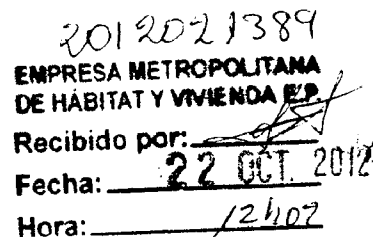 2012021389
EMPRESA METROPOLITANA
DE HÁBITAT Y VIVIENDA E.P.
Recibido por:
Fecha: 22 OCT. 2012
Hora: 12h07